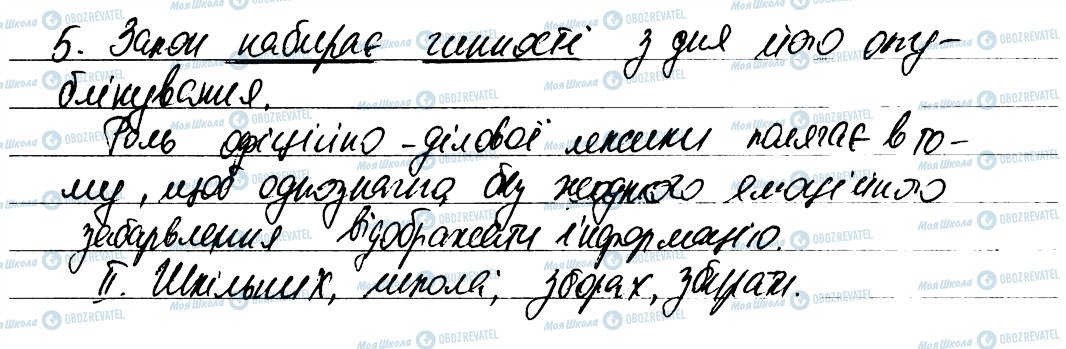 5. Закон набирає чинності з дня його опу-
блікування.
Роль офіційно-ділової лексики полягає в то-
му, щоб однозначно, без жодного емоційного
забарвлення відображати інформацію.
II. Шкільних, школа; зборах, збирати.